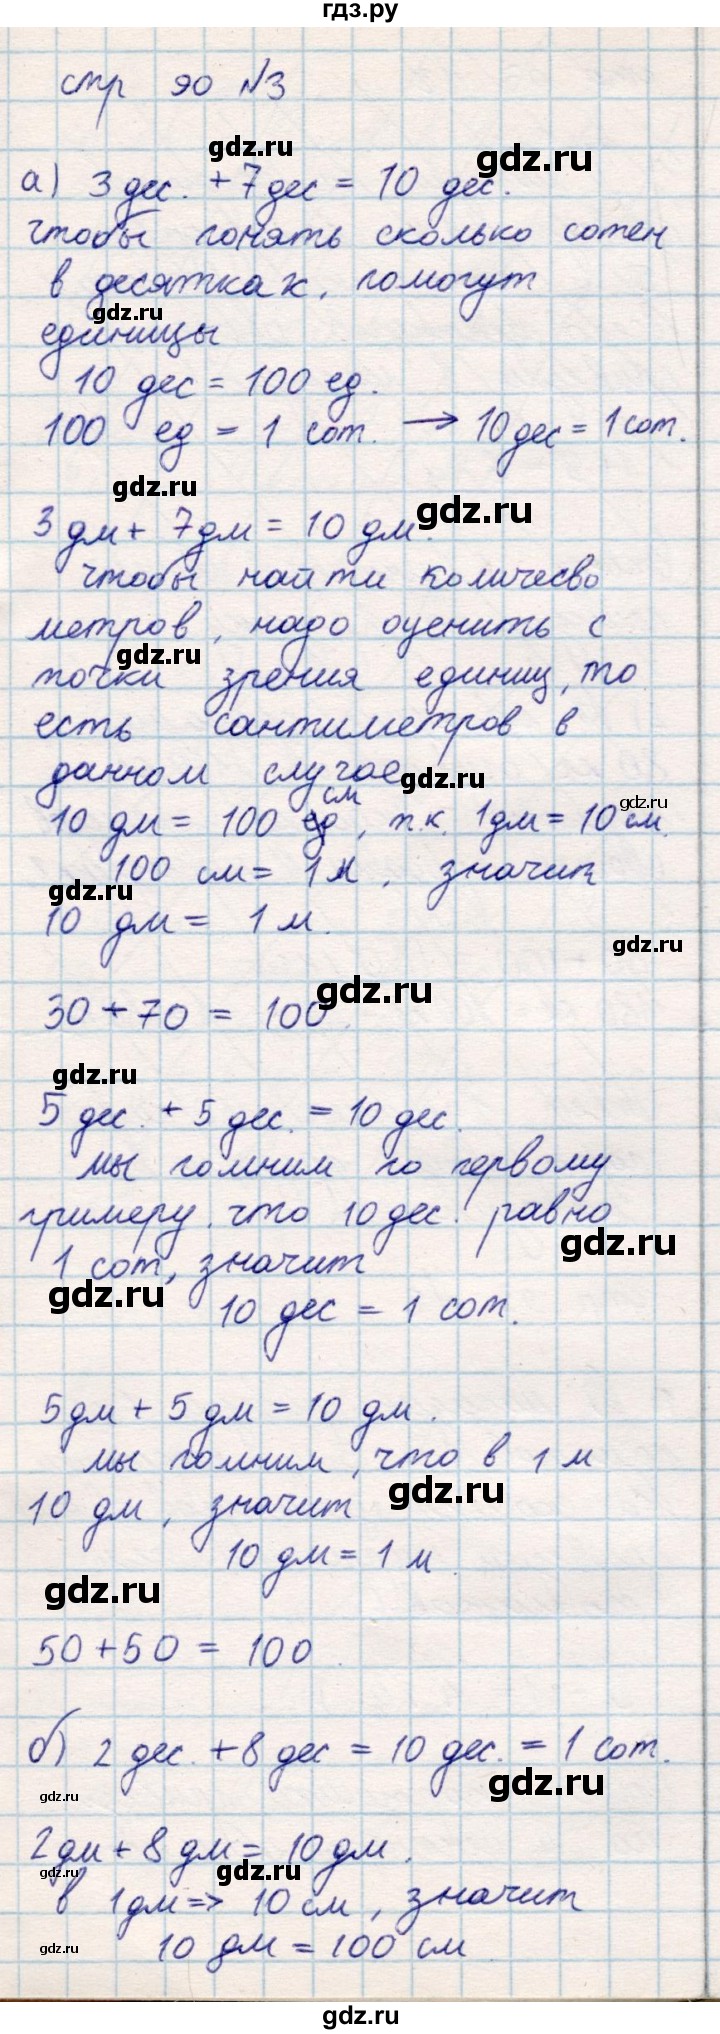 гдз.ру
стр 90 №3
gdz.ru
gdz.ru
а) 3 дес. + 7 дес = 10 дес.
чтобы понять сколько сотен
в десятках, помогут
gdz.ru
единицы
10 дес = 100 ед.
gdz.ru
100 ед = 1 сот. → 10 дес = 1 сот.
gdz.ru
gdz.ru
3 дм + 7 дм = 10 дм.
чтобы найти количесво
метров, надо оценить с
gdz.ru
точки зрения единиц, то
есть сантиметров в
данном случае
gdz.ru
см
gdz.ru
10 дм = 100 ед, т.к. 1 дм = 10 см.
100 см = 1 м, значит
gdz.ru
10 дм = 1 м.
gdz.ru
gdz.ru
30 + 70 = 100.
gdz.ru
5 дес. + 5 дес. = 10 дес.
мы помним по первому
примеру, что 10 дес. равно
gdz.ru
1 сот, значит
gdz.ru
10 дес = 1 сот.
5 дм + 5 дм = 10 дм.
мы помним, что в 1 м
gdz.ru
10 дм, значит
10 дм = 1 м.
gdz.ru
50 + 50 = 100.
б) 2 дес. + 8 дес = 10 дес. = 1 сот.
gdz.ru
gdz.ru
2 дм + 8 дм = 10 дм.
gdz.ru
gdz.ru
в 1 дм => 10 см, значит
gdz.ru
10 дм = 100 см
gdz.ru